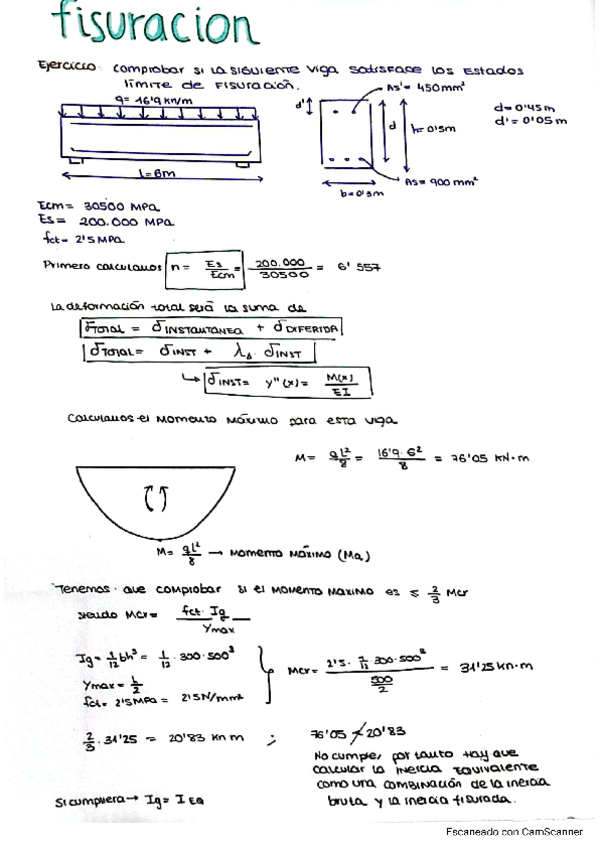 fisuracion
Ejercicio: comprobar si la siguiente viga satisface los estados
límite de fisuración.
q = 16'9 kn/m
As' = 450 mm²
d'
d
h = 0'5m
d = 0'45m
d' = 0'05m
L = 6m
b = 0'3m
As = 900 mm²
Ecm = 30500 MPa
Es = 200.000 MPa
fct = 2'5 MPa
Primero calculamos n = Es/Ecm = 200.000/30500 = 6'557
La deformación total será la suma de
δTOTAL = δINSTANTANEA + δDIFERIDA
δTOTAL = δINST + λΔ · δINST
↳ δINST = y''(x) = M(x)/EI
Calculamos el momento máximo para esta viga
M = ql²/8 = 16'9·6²/8 = 76'05 KN·m
M = ql²/8 → momento máximo (Ma)
Tenemos que comprobar si el momento maximo es ≤ 2/3 Mcr
siendo Mcr = fct · Ig / Ymax
Ig = 1/12 bh³ = 1/12 · 300·500³
Ymax = h/2
fct = 2'5 MPa = 2'5 N/mm²
Mcr = 2'5 · 1/12 300·500³ / 500/2 = 31'25 kn·m
2/3 · 31'25 = 20'83 kn m ; 76'05 ≮ 20'83
No cumple, por tanto hay que
calcular la inercia equivalente
como una combinación de la inercia
bruta y la inercia fisurada.
Si cumpliera → Ig = I EQ
Escaneado con CamScanner